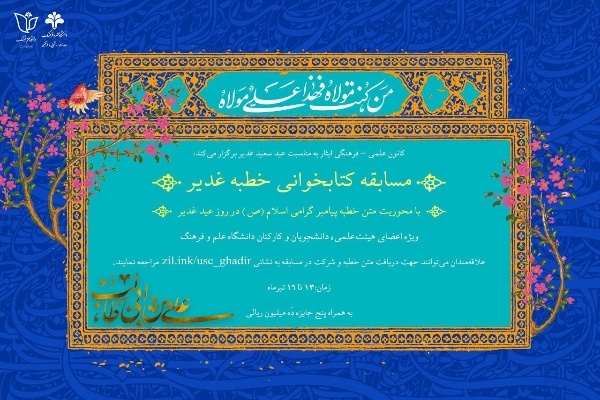 من کنت مولاه فهذا علی مولاه
کانون علمی - فرهنگی ایثار به مناسبت عید سعید غدیر برگزار می‌کند:
مسابقه کتابخوانی خطبه غدیر
با محوریت متن خطبه پیامبر گرامی اسلام (ص) در روز عید غدیر
ویژه اعضای هیئت علمی، دانشجویان و کارکنان دانشگاه علم و فرهنگ
علاقه‌مندان می‌توانند جهت دریافت متن خطبه و شرکت در مسابقه به نشانی zil.ink/usc_ghadir مراجعه نمایند.
زمان: ۱۳ تا ۱۶ تیرماه
به همراه پنج جایزه ده میلیون ریالی
علی بن ابی طالب